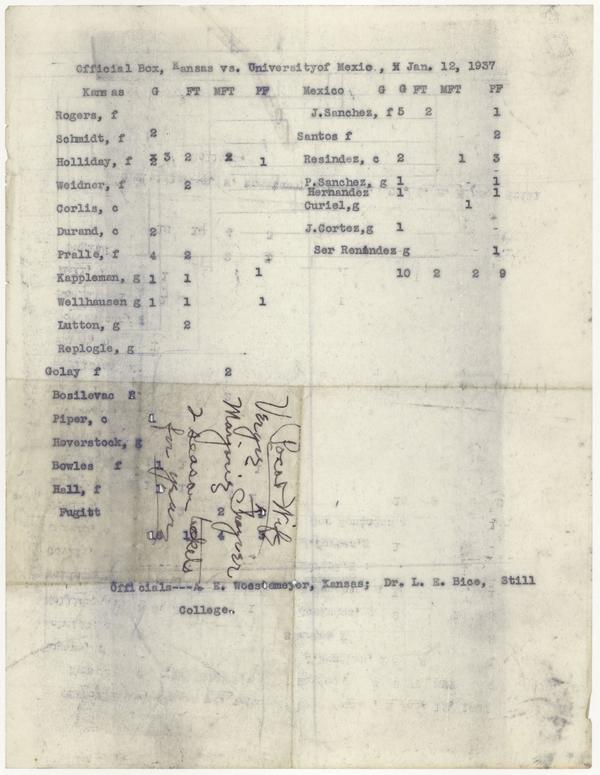 Official Box, Kansas vs. Universityof Mexic., H Jan. 12, 1937
Kansas G FT MFT PF Mexico G G FT MFT PF
Rogers, f J.Sanchez, f 5 2 1
Schmidt, f 2 Santos f 2
Holliday, f 3 2 2 1 Resindez, c 2 1 3
Weidner, f 2 P.Sanchez, g 1 - 1
Hernandez 1 1
Corlis, c Curiel,g 1
Durand, c 2 J.Cortez,g 1 -
Pralle, f 4 2 Ser Renandez g 1
Kappleman, g 1 1 1 10 2 2 9
Wellhausen g 1 1 1
Lutton, g 2
Replogle, g
Golay f 2
Bosilevac g
Piper, c 1
Hoverstock, g
Bowles f 1
Hall, f 1
Fugitt 2
16 1 4
Wife
Marjorie
2 season tickets
for your
Officials---A E. Woestemeyer, Kansas; Dr. L. E. Bice, Still
College.